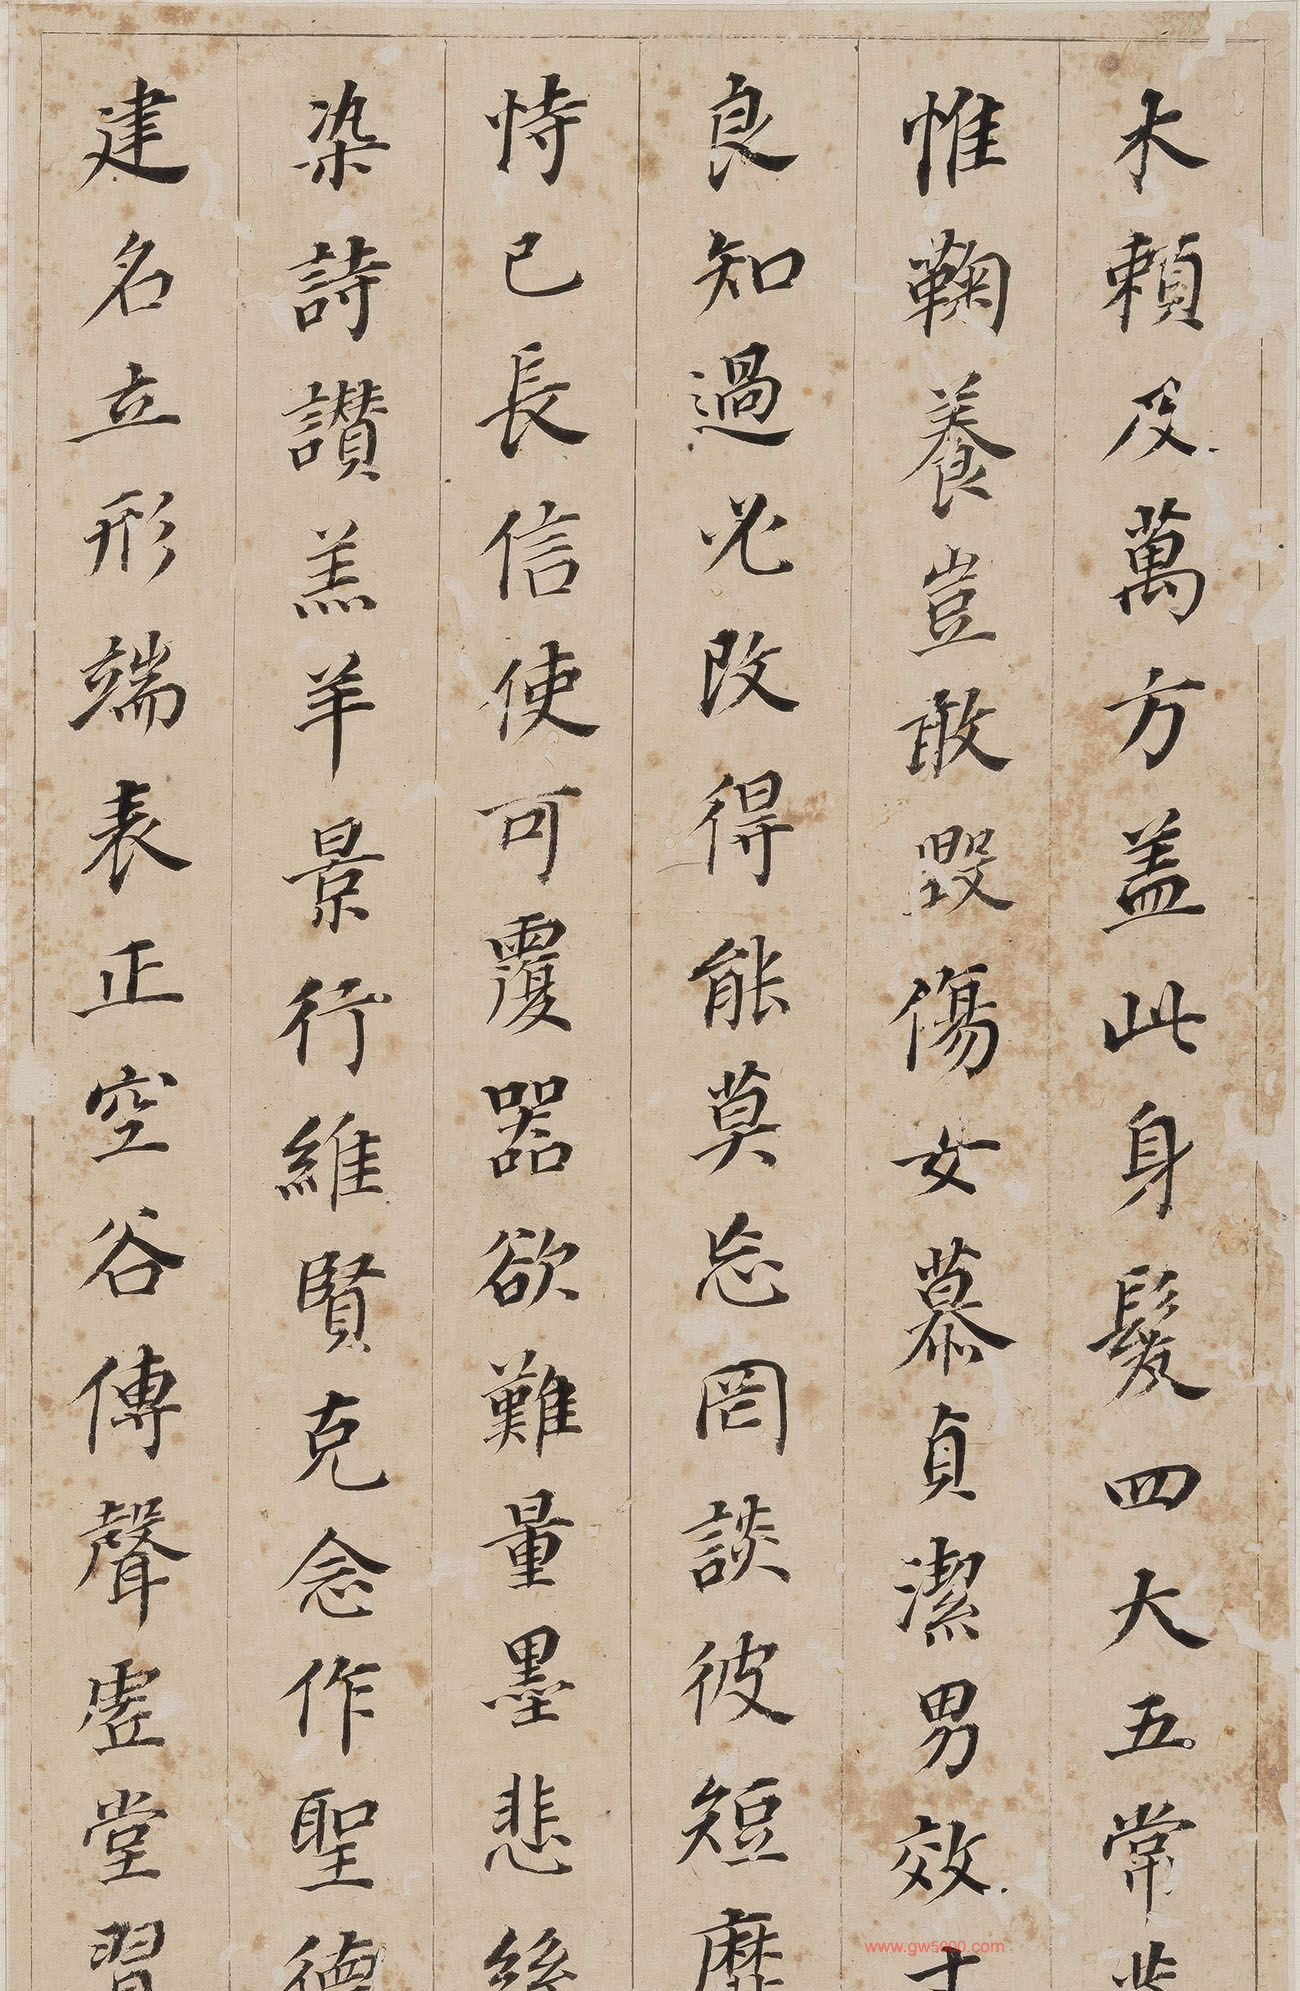 木賴及萬方盖此身髮四大五常恭
惟鞠養豈敢毀傷女慕貞潔男效才
良知過必改得能莫忘罔談彼短靡
恃己長信使可覆器欲難量墨悲絲
染詩讃羔羊景行維賢克念作聖德
建名立形端表正空谷傳聲虛堂習
www.gw5000.com